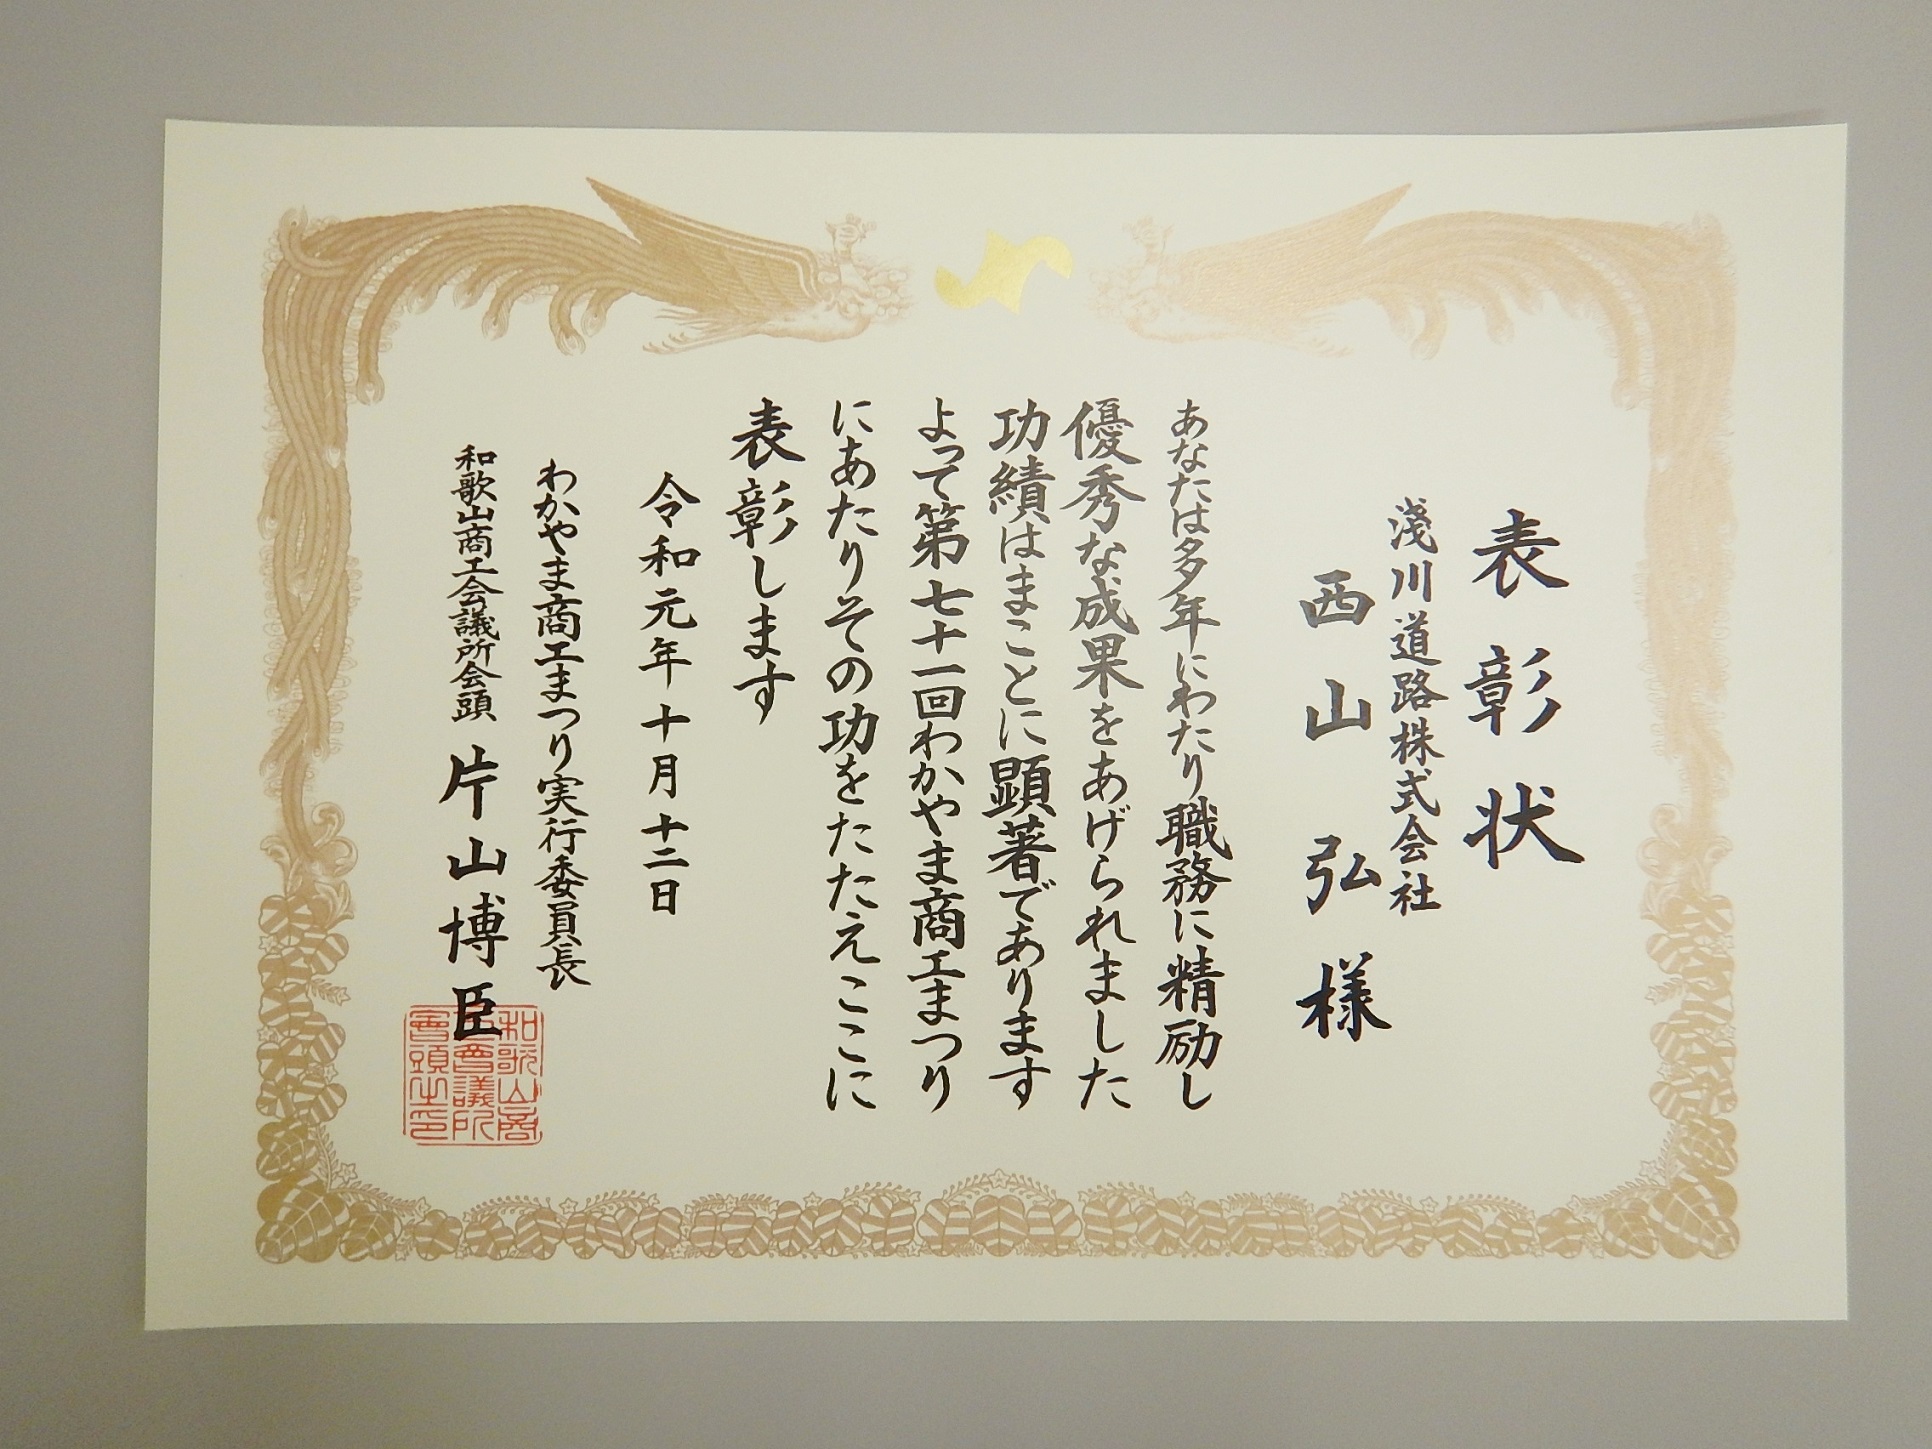 表彰状
淺川道路株式会社
西山弘様
あなたは多年にわたり職務に精励し
優秀な成果をあげられました
功績はまことに顕著であります
よって第七十一回わかやま商工まつり
にあたりその功をたたえここに
表彰します
令和元年十月十二日
わかやま商工まつり実行委員長
和歌山商工会議所会頭 片山博臣
和歌山商
工會議所
會頭之印